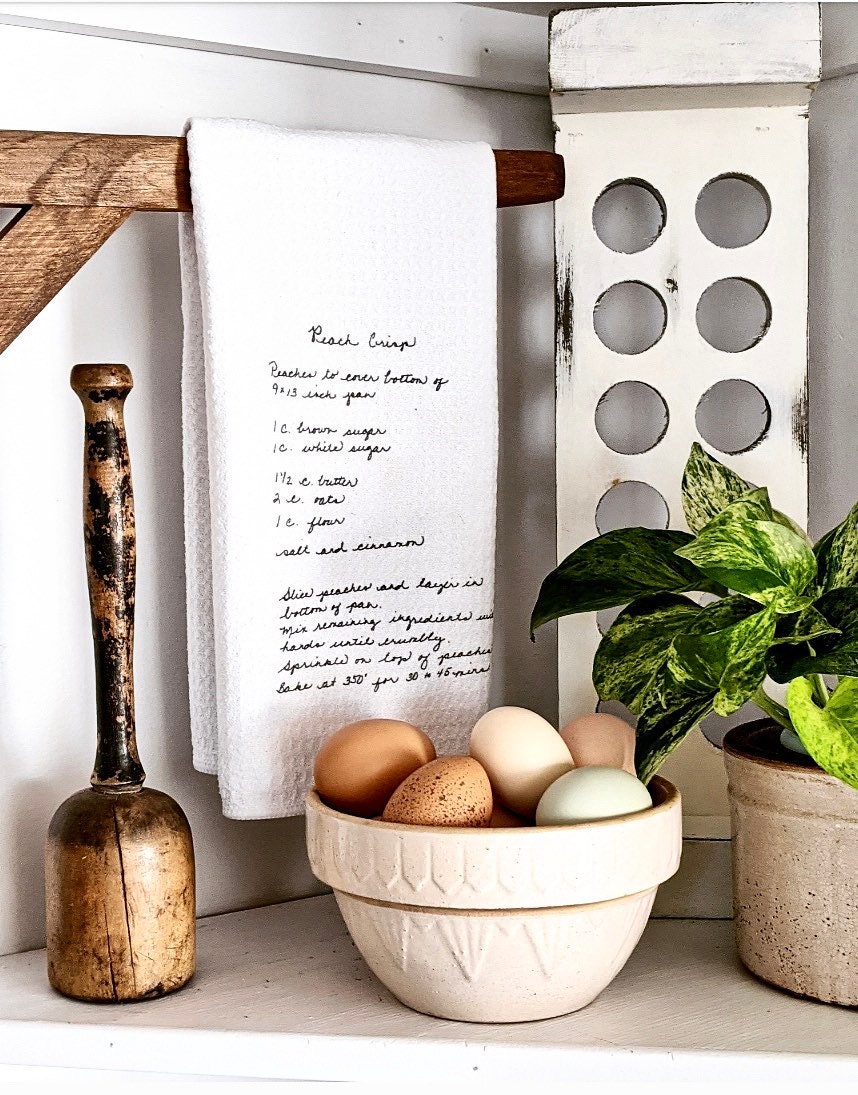 Peach Crisp
Peaches to cover bottom of
9x13 inch pan
1 c. brown sugar
1 c. white sugar
1 1/2 c. butter
2 c. oats
1 c. flour
salt and cinnamon
Slice peaches and layer in
bottom of pan.
Mix remaining ingredients
hands until crumbly.
Sprinkle on top of peaches
Bake at 350° for 30 to 45 mins